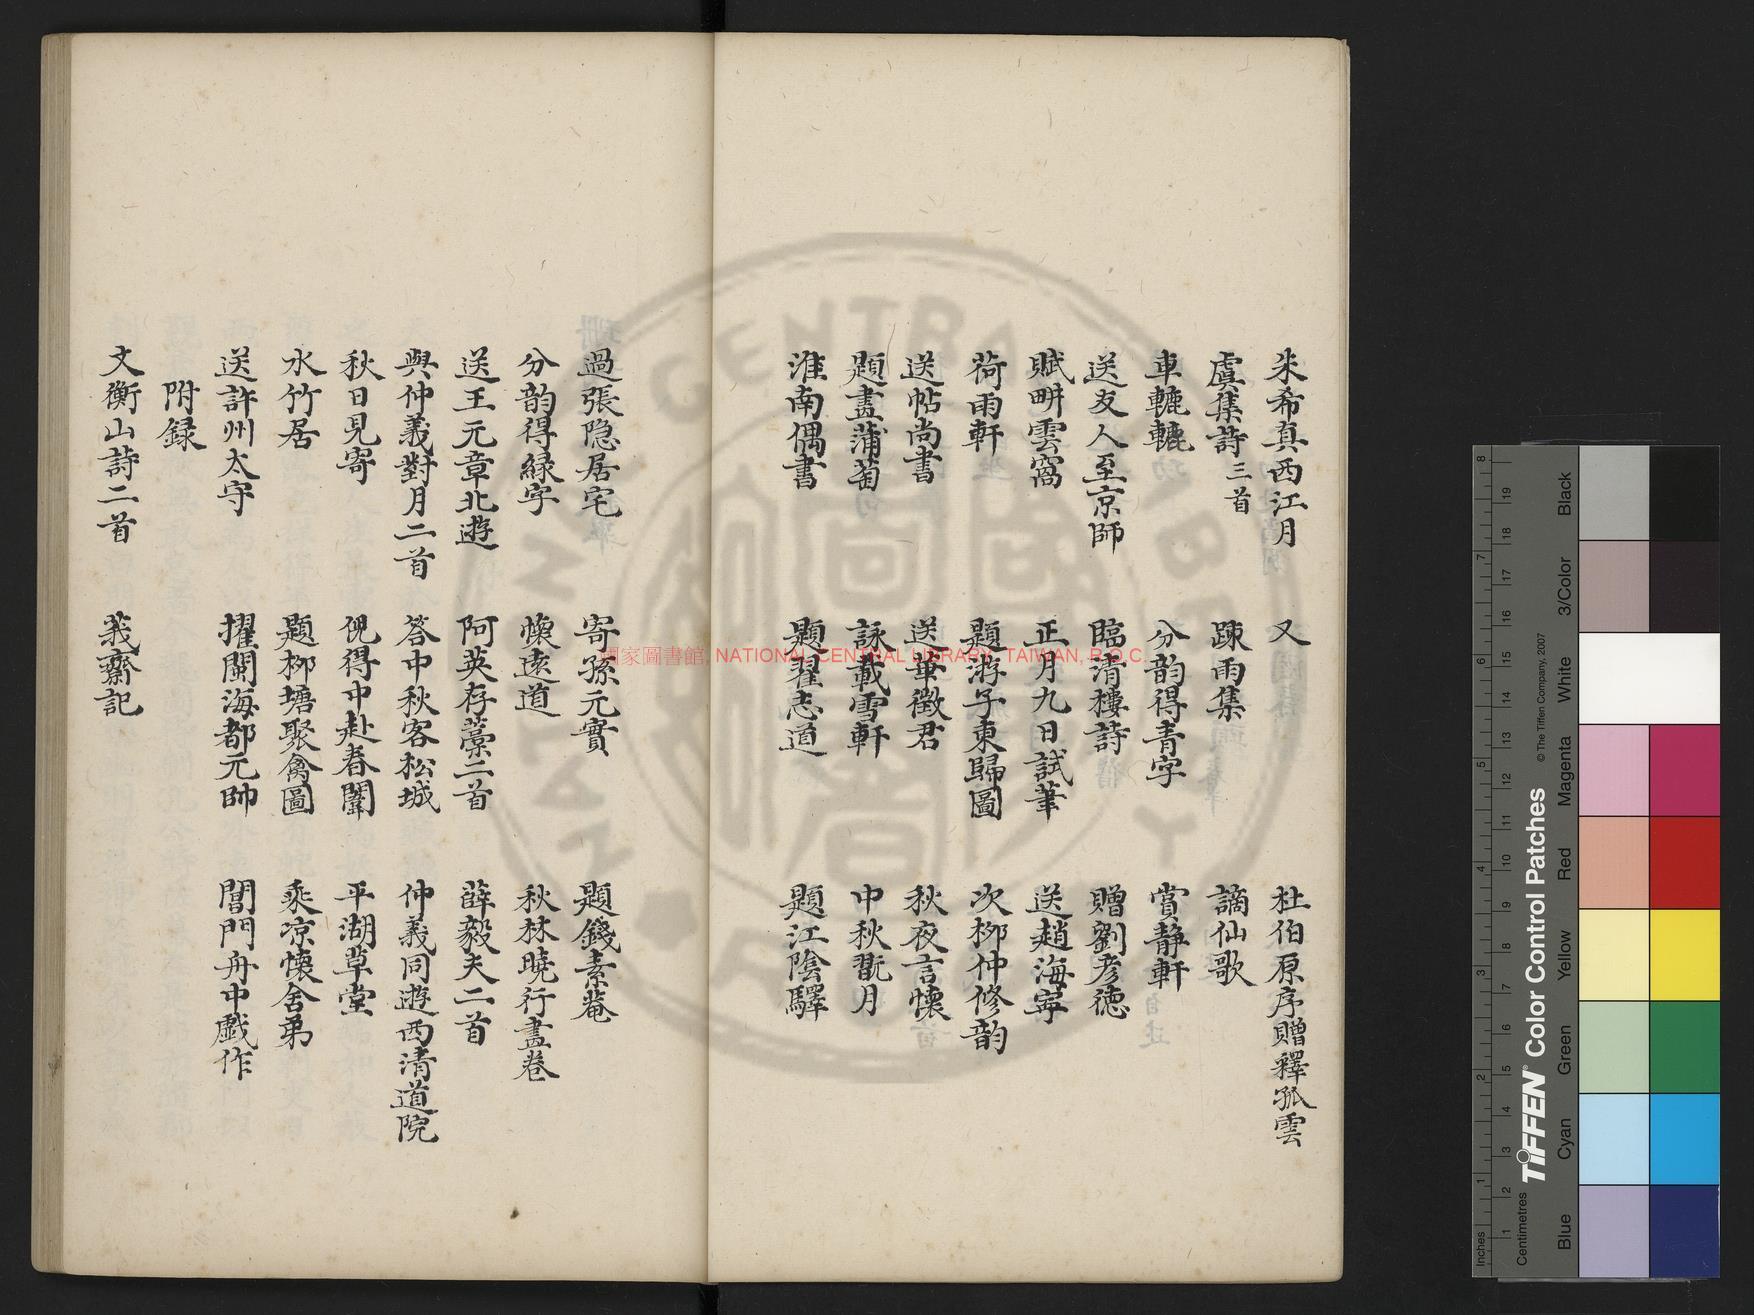 朱希真西江月　又　杜伯原序贈釋孤雲
虞集詩三首　踈雨集　謫仙歌
車轆轆　分韵得青字　賞静軒
送友人至京師　臨清樓詩　贈劉彦德
賦畊雲窩　正月九日試筆　送趙海寧
荷雨軒　題游子東歸圖　次栁仲修韵
送帖尚書　送華徵君　秋夜言懷
題畫蒲萄　詠載雪軒　中秋翫月
淮南偶書　題翟志道　題江陰驛
過張隐居宅　寄孫元實　題錢素菴
分韵得緑字　懷遠道　秋林曉行畫卷
送王元章北遊　阿英存藁二首　薛毅夫二首
與仲義對月二首　答中秋客松城　仲義同遊西清道院
秋日見寄　倪得中赴春闈　平湖草堂
水竹居　題栁塘聚禽圖　乘凉懷舍弟
送許州太守　擢閫海都元帥　閶門舟中戯作
附録
文衡山詩二首　義齋記
國家圖書館, NATIONAL CENTRAL LIBRARY, TAIWAN, R.O.C.
TIFFEN® Color Control Patches
© The Tiffen Company, 2007
Inches
Centimetres
Blue
Cyan
Green
Yellow
Red
Magenta
White
3/Color
Black